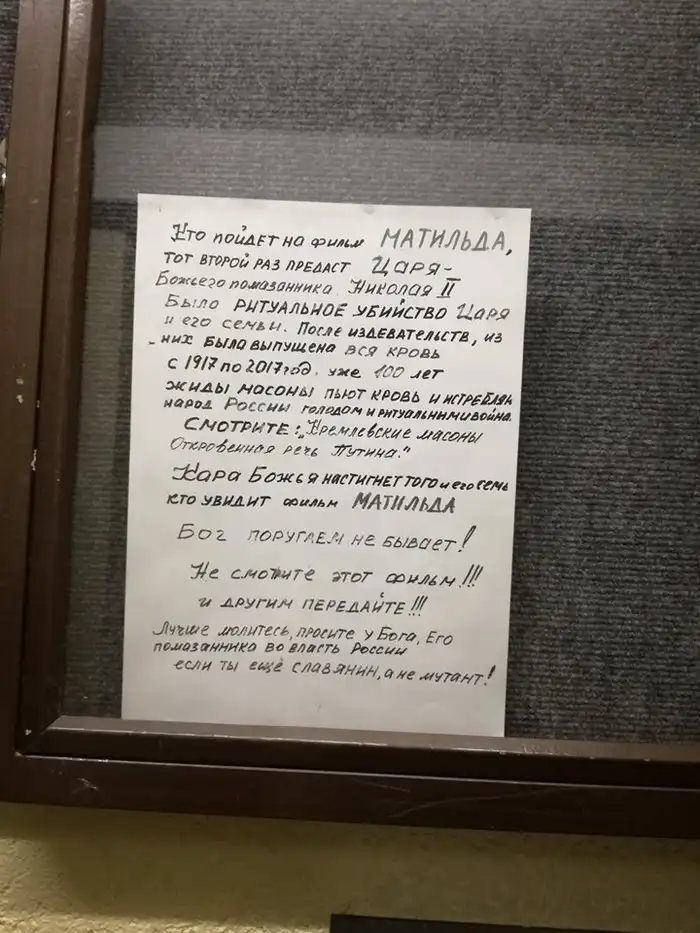 Кто пойдет на фильм МАТИЛЬДА,
тот второй раз предаст Царя-
Божьего помазанника Николая II
Было РИТУАЛЬНОЕ УБИЙСТВО Царя
и его семьи. После издевательств, из
них была выпущена вся кровь
с 1917 по 2017 год. уже 100 лет
жиды масоны пьют кровь и истреблян
народ России голодом и ритуальними война.
Смотрите: „Кремлевские масоны
Откровенная речь Путина."
Кара Божья настигнет того и его семь
кто увидит фильм МАТИЛЬДА
Бог поругаем не бывает!
Не смотите этот фильм!!!
и другим передайте!!!
Лучше молитесь, просите у Бога, Его
помазанника во власть России
если ты ещё славянин, а не мутант!